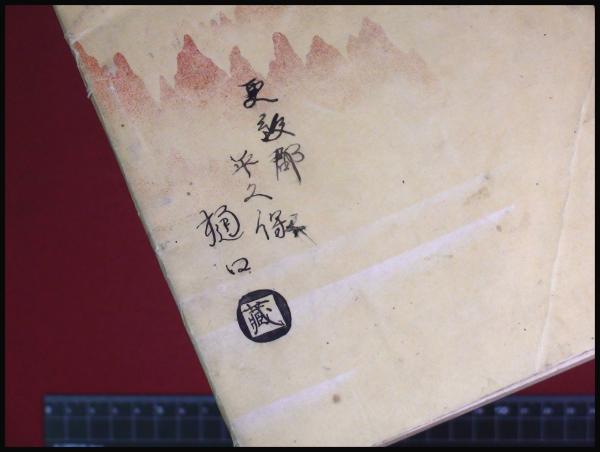 更級郡
平久保
樋口
藏